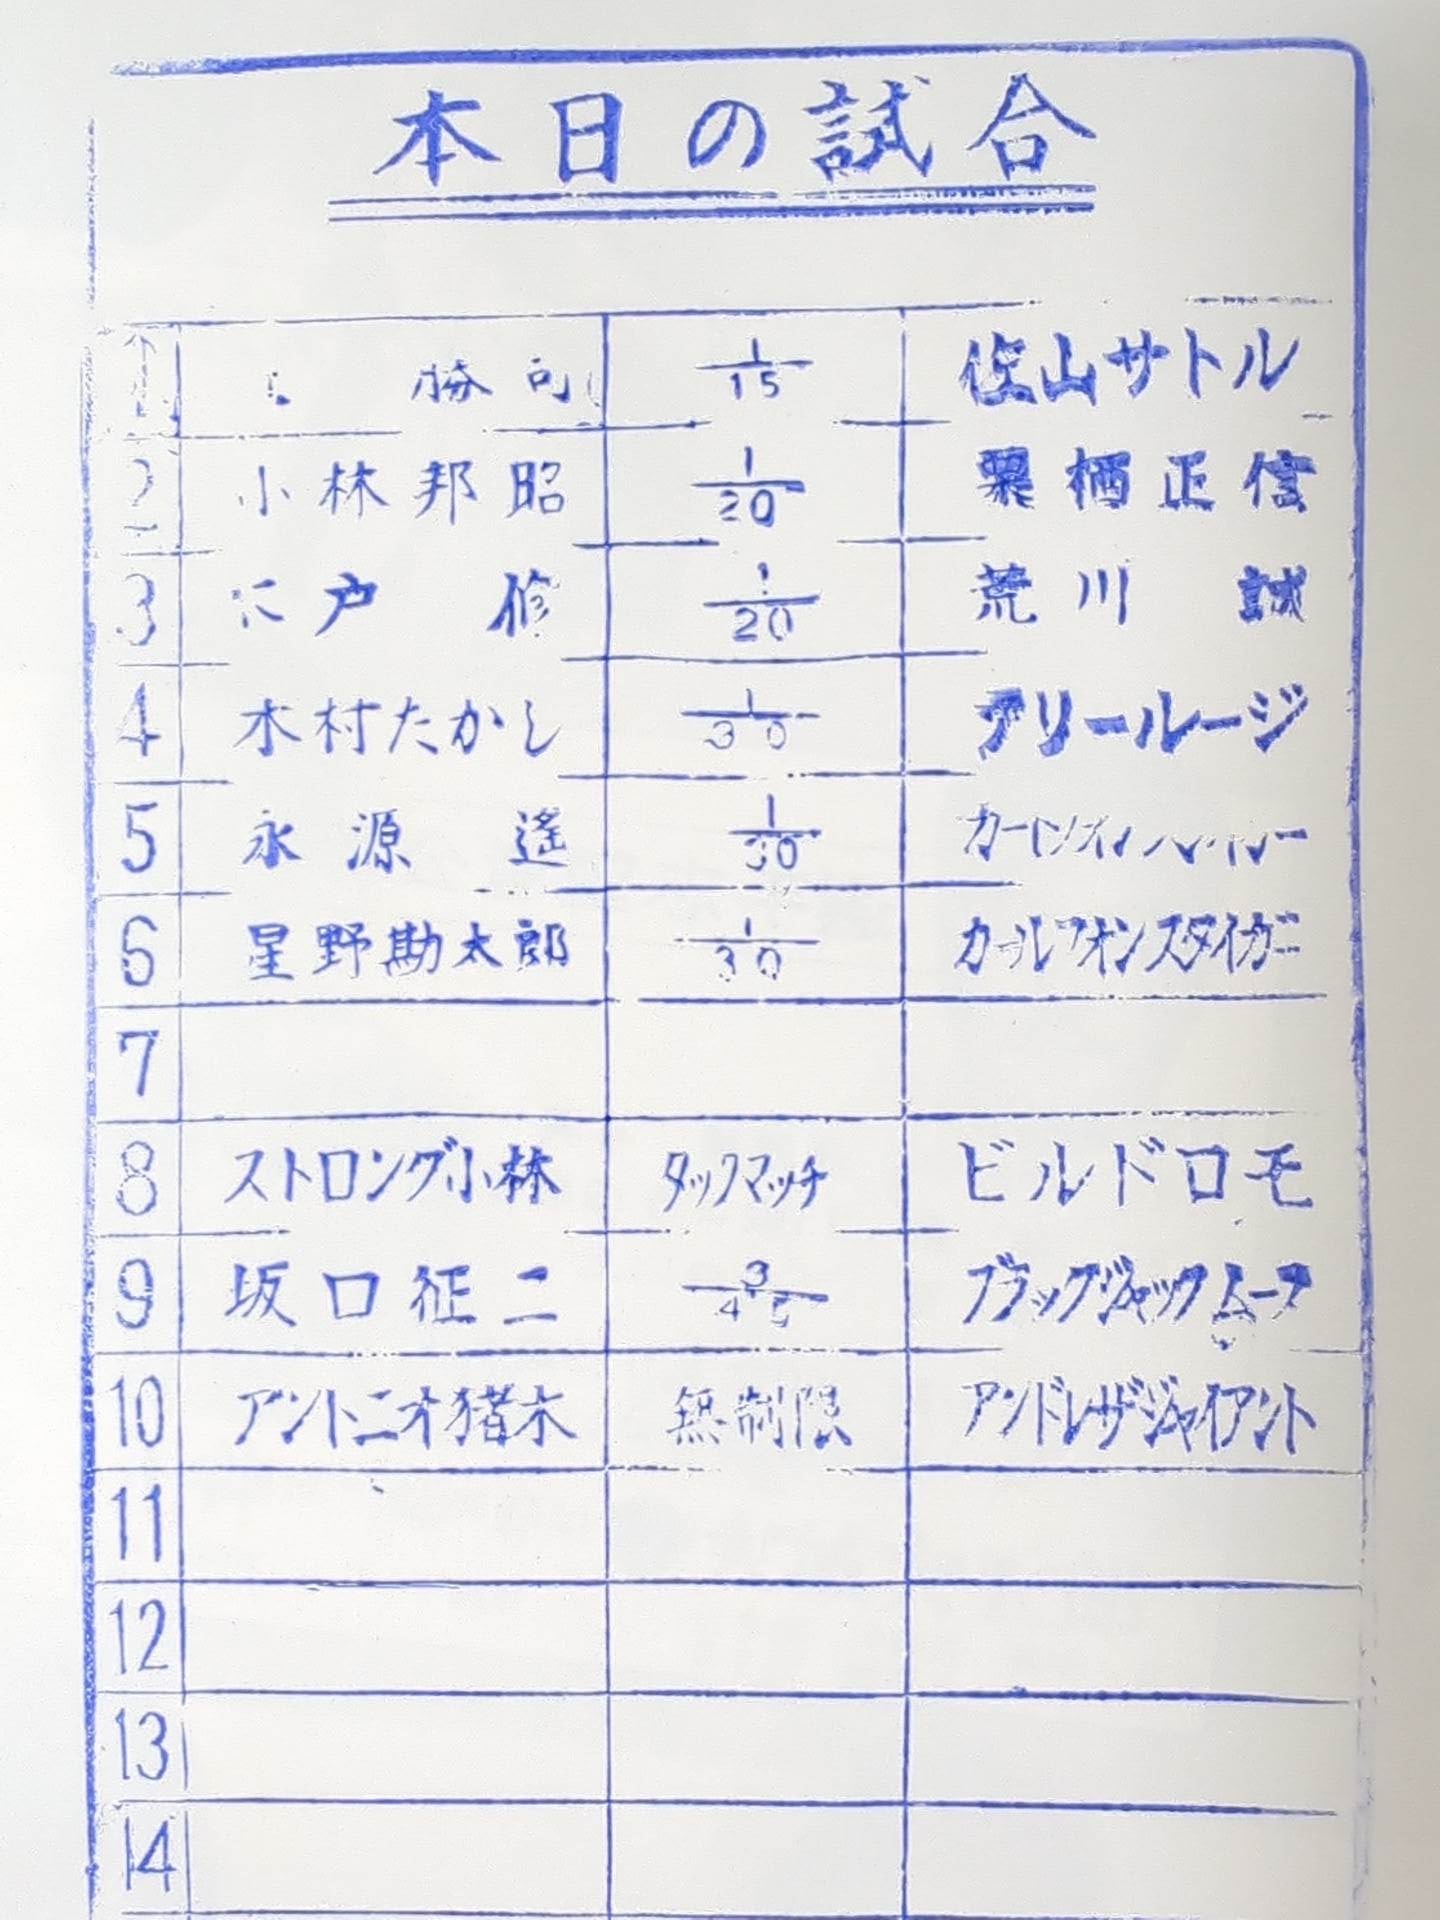 本日の試合
1 勝司 1/15 佐山サトル
2 小林邦昭 1/20 栗栖正信
3 戸 修 1/20 荒川 誠
4 木村たかし 1/30 クリールージ
5 永源 遙 1/30 カートン
6 星野勘太郎 1/30 カールフオンスタイガー
7
8 ストロング小林 タックマッチ ビルドロモ
9 坂口征二 3/45 ブラックジャックムース
10 アントニオ猪木 無制限 アンドレザジャイアント
11
12
13
14